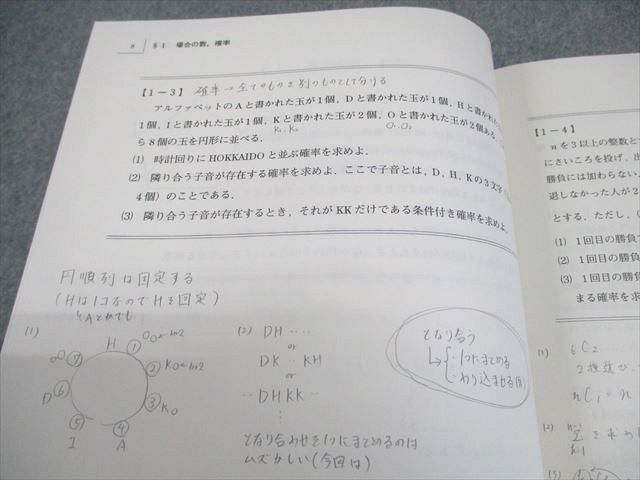 8 §1 場合の数，確率
【1－3】 確率→全てのものを別のものとして分ける
アルファベットのAと書かれた玉が1個，Dと書かれた玉が1個，Hと書かれた
1個，Iと書かれた玉が1個，Kと書かれた玉が2個，Oと書かれた玉が2個ある．
K₁, K₂ O₁, O₂
ら8個の玉を円形に並べる．
(1) 時計回りにHOKKAIDOと並ぶ確率を求めよ．
(2) 隣り合う子音が存在する確率を求めよ．ここで子音とは，D，H，Kの3文字
4個）のことである．
(3) 隣り合う子音が存在するとき，それがKKだけである条件付き確率を求めよ．
円順列は固定する
(Hは1コなのでHを固定)
(1)
H
① O
② K
③ K
④ A
⑤ I
⑥ D
⑦ O
(2) DH ‥‥
or
DK ‥ KH
or
‥DHKK‥
となり合わせを1つにまとめるのは
ムズかしい(今回は)
となり合う
1つにまとめる
わり込ませる
【1－4】
nを3以上の整数と
にさいころを投げ，出
勝負には加わらない．
退しなかった人が2
とする．ただし，
(1) 1回目の勝負
(2) 1回目の勝
(3) 1回目の勝
まる確率を求
(1) ₆C₂
2種選び
ₙC₁=n
(2)
(3)